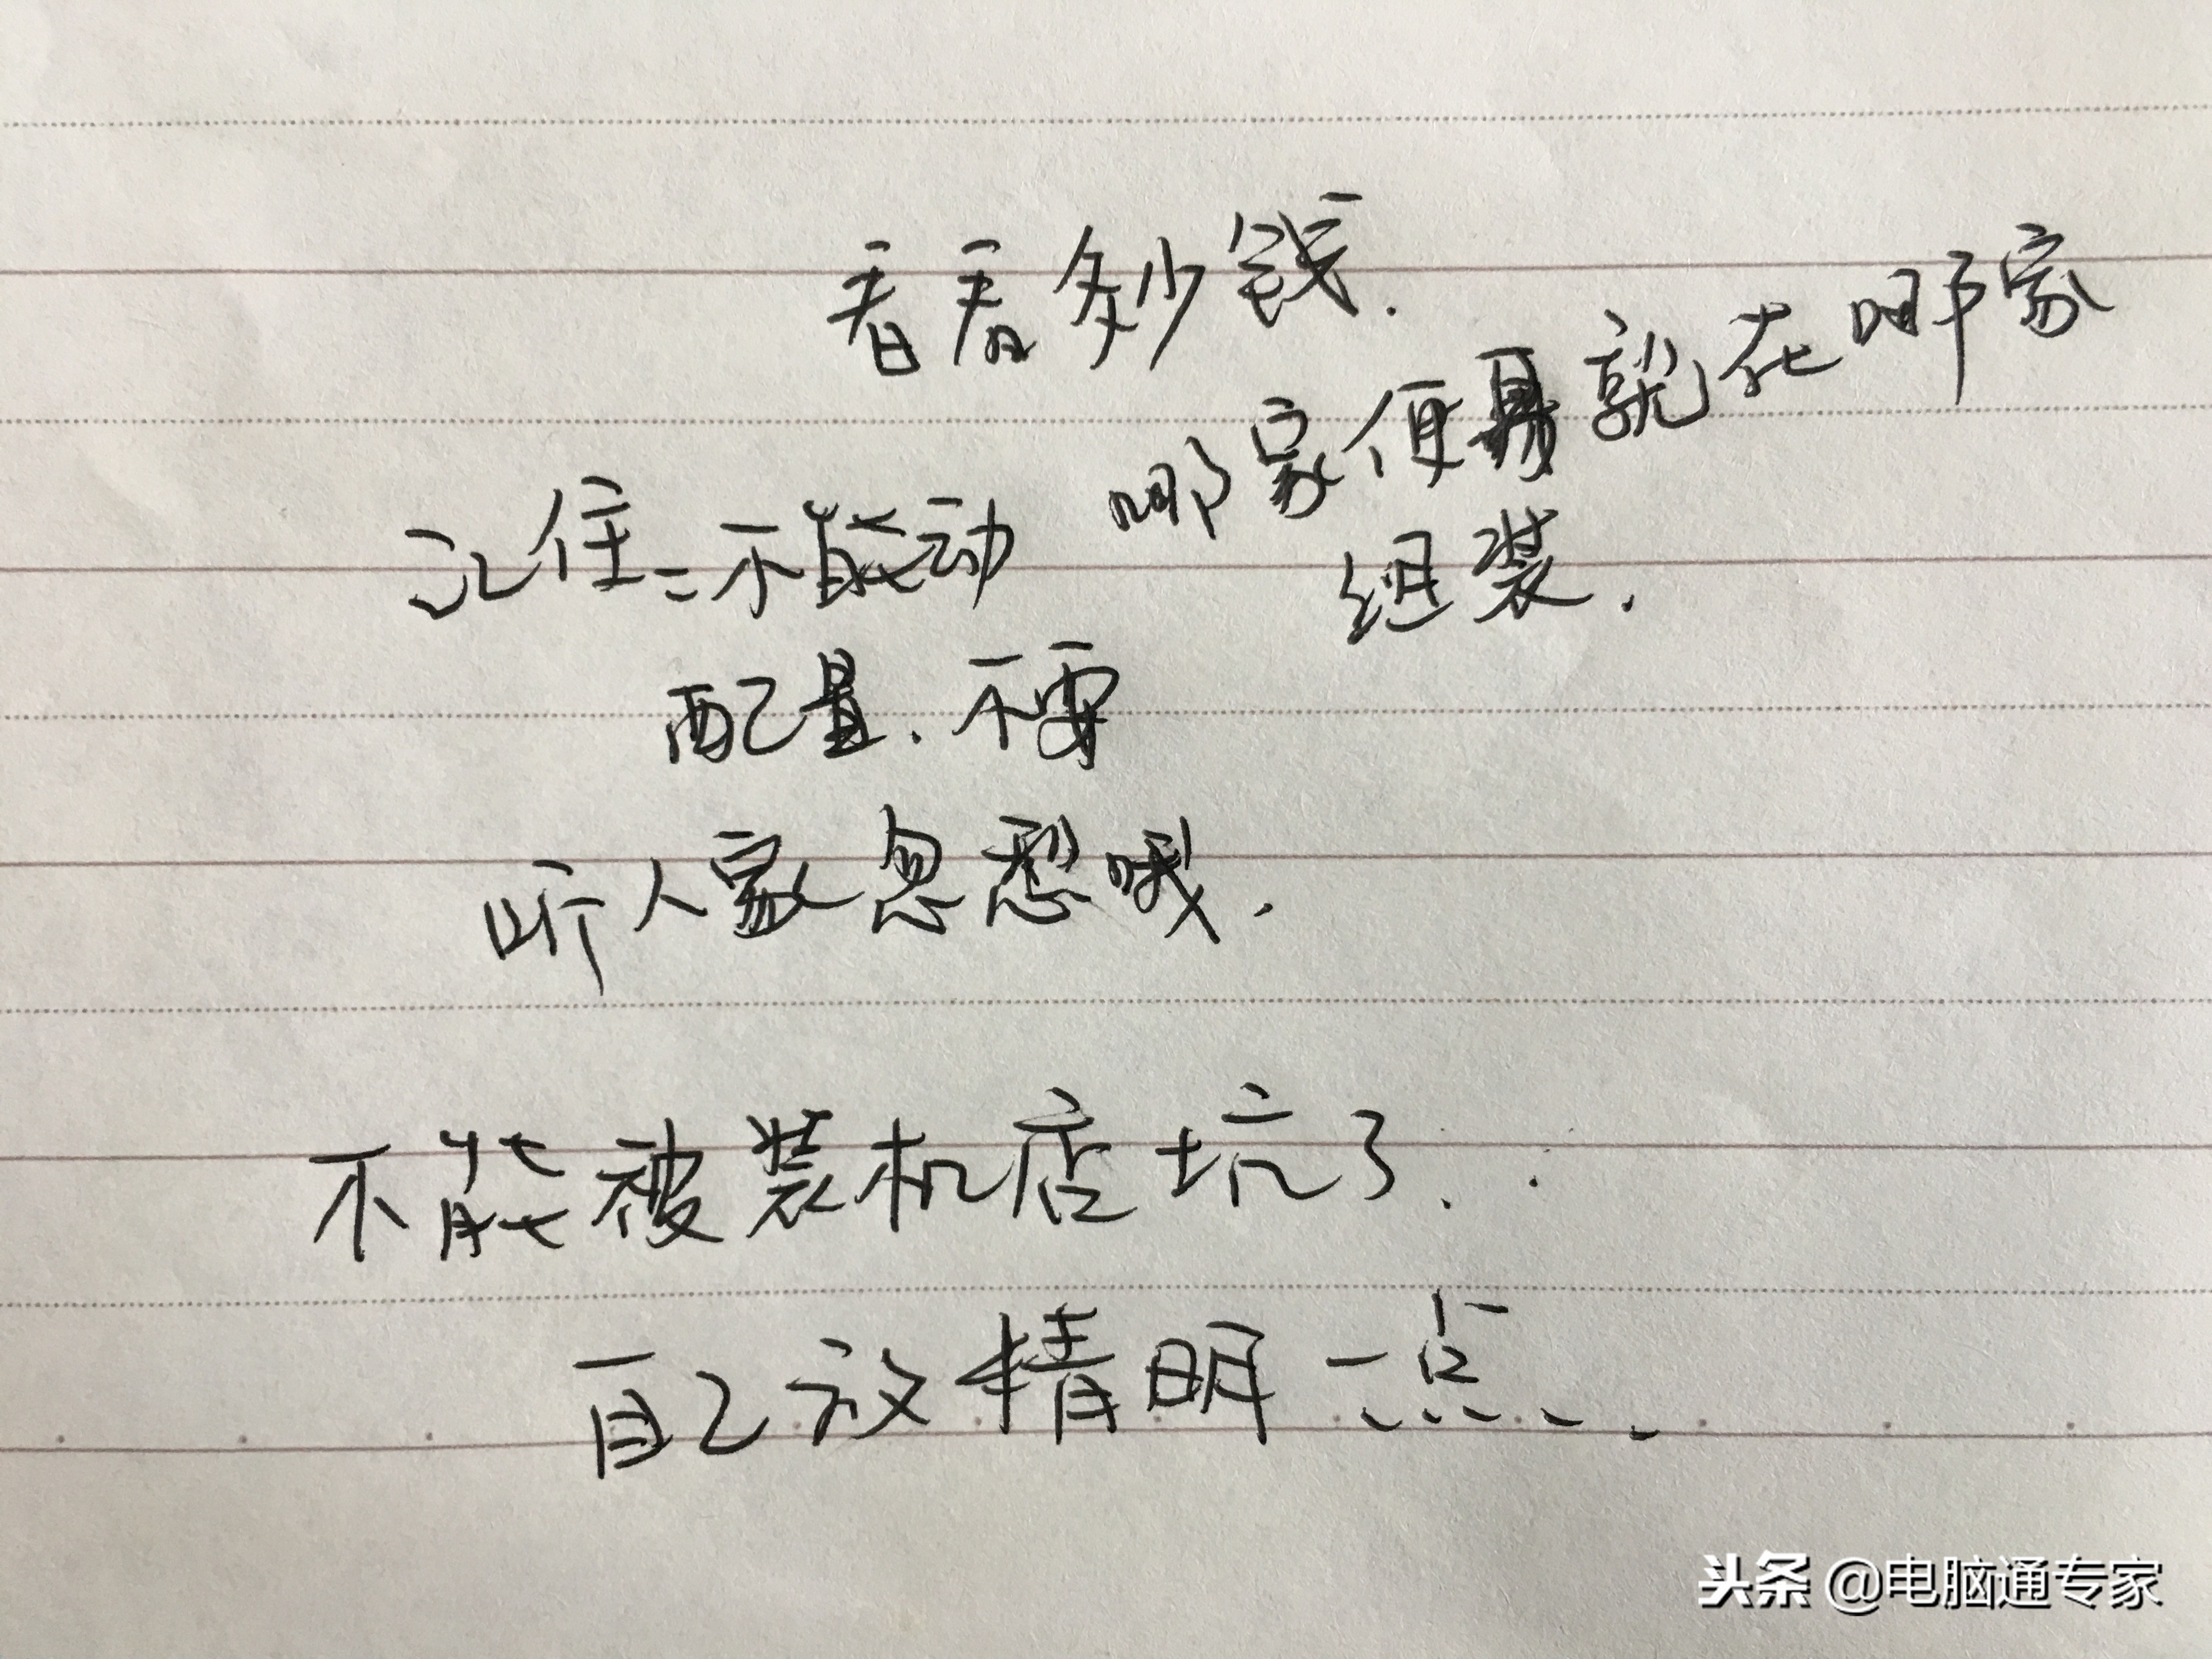 看看多少钱.
哪家便易就在哪家
组装.
记住=不能动
配置.不要
听人家忽悡哦.
不能被装机店坑了..
自己放精明一点..
头条 @电脑通专家